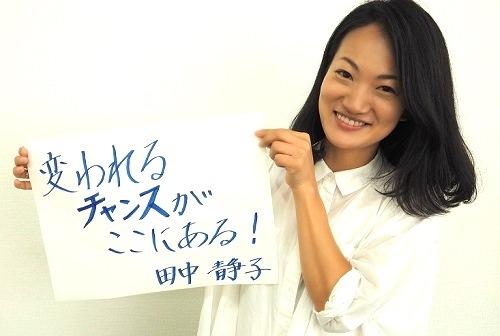 変われる
チャンスが
ここにある!
田中 静子